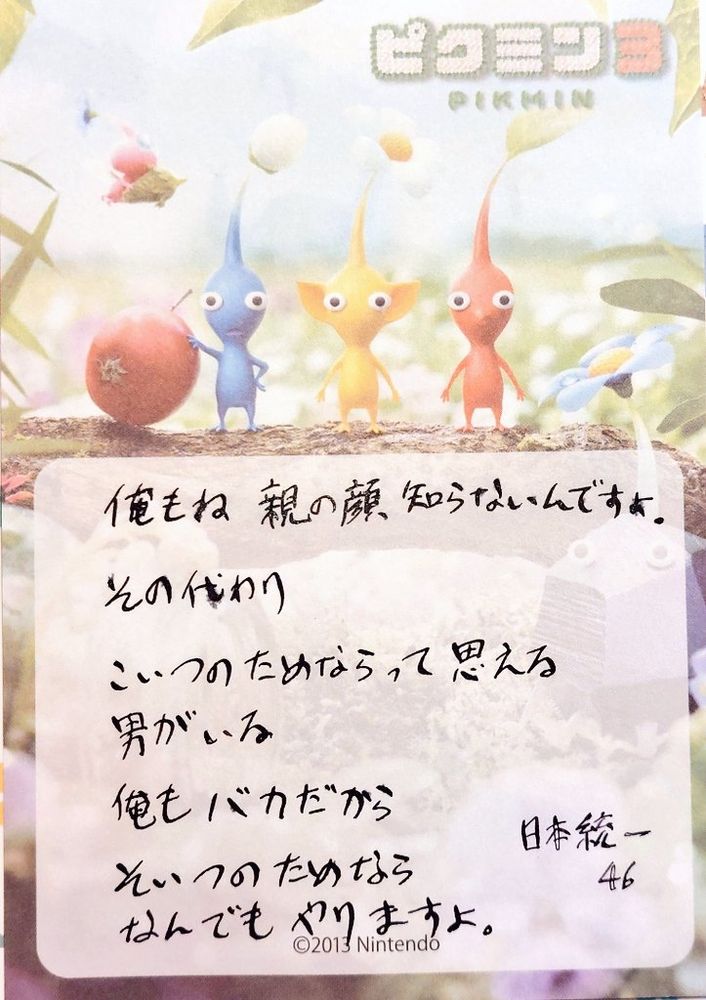 ピクミン3
PIKMIN
俺もね 親の顔、知らないんですよ。
その代わり
こいつのためならって思える
男がいる
俺もバカだから
そいつのためなら
なんでもやりますよ。
日本統一
46
©2013 Nintendo